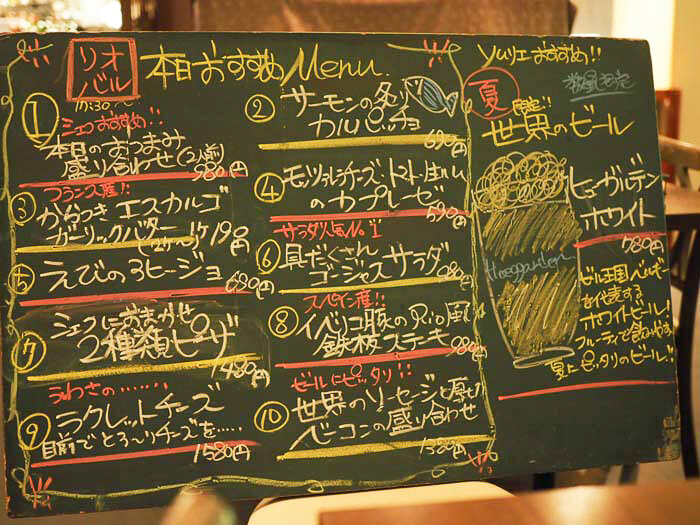 リオ
バル
本日おすすめMenu.
17:30〜
① シェフおすすめ!!
本日のおつまみ
盛り合わせ(2人前)
980円
② サーモンの炙り
カルパッチョ
690円
フランス産!!
③ からつき エスカルゴ
ガーリックバター
(2ケ〜) 1ケ190円
④ モッツァレラチーズ・トマト・生ハム
のカプレーゼ
590円
⑤ えびのアヒージョ
690円
サラダ人気No.1
⑥ 具だくさん
ゴージャスサラダ
980円
⑦ シェフにおまかせ
2種類ピザ
1480円
スペイン産!!
⑧ イベリコ豚のRio風
鉄板ステーキ
980円
うわさの……
⑨ ラクレットチーズ
目前でとろ〜りチーズを……
1580円
ビールにピッタリ!!
⑩ 世界のソーセージと厚切り
ベーコンの盛り合わせ
1380円
ソムリエおすすめ!!
数量限定
夏限定!!
世界のビール
ヒューガルデン
ホワイト
780円
Hoegaarden
ビール王国ベルギー
を代表する
ホワイトビール!
フルーティで飲みやすく
夏にピッタリのビール!!